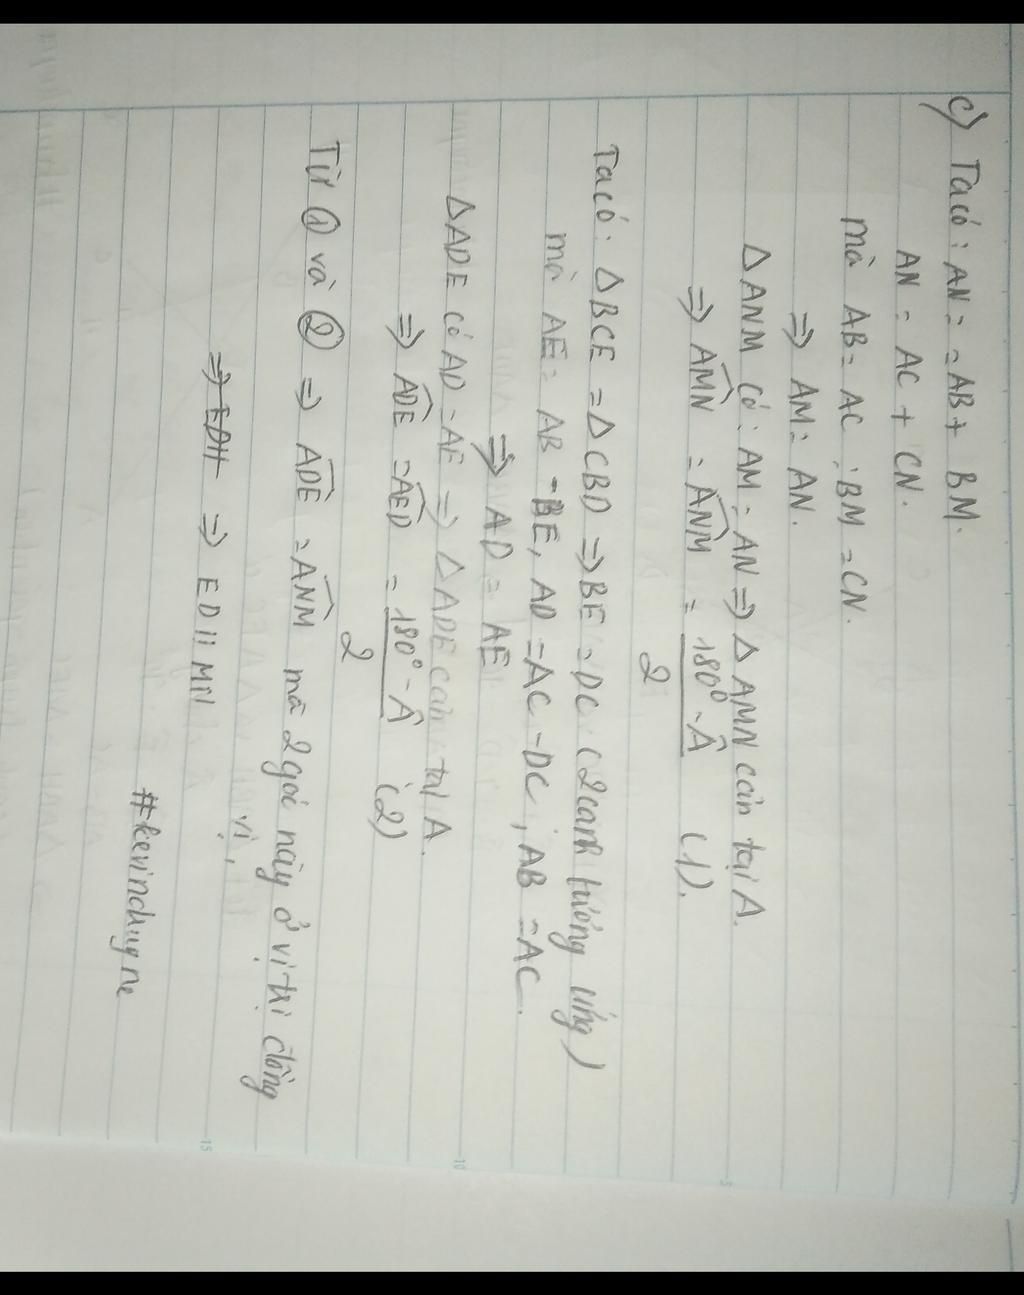 c) Ta có: AN = = AB + BM.
AN = AC + CN.
mà AB = AC ; BM = CN.
⇒ AM = AN.
ΔANM có: AM = AN ⇒ ΔAMN cân tại A.
⇒ \widehat{AMN} = \widehat{ANM} = \frac{180° - \widehat{A}}{2} (1).
Ta có: ΔBCE = ΔCBD ⇒ BE = DC (2 canh tướng ứng)
mà AE = AB - BE, AD = AC - DC ; AB = AC.
⇒ AD = AE
ΔADE có AD = AE ⇒ ΔADE cân tại A.
⇒ \widehat{ADE} = \widehat{AED} = \frac{180° - \widehat{A}}{2} (2)
Từ ① và ② ⇒ \widehat{ADE} = \widehat{ANM} mà 2 goc này ở vị trí đồng
vị,
⇒ EDH ⇒ ED // MN
#kevinchugne
15
10
5